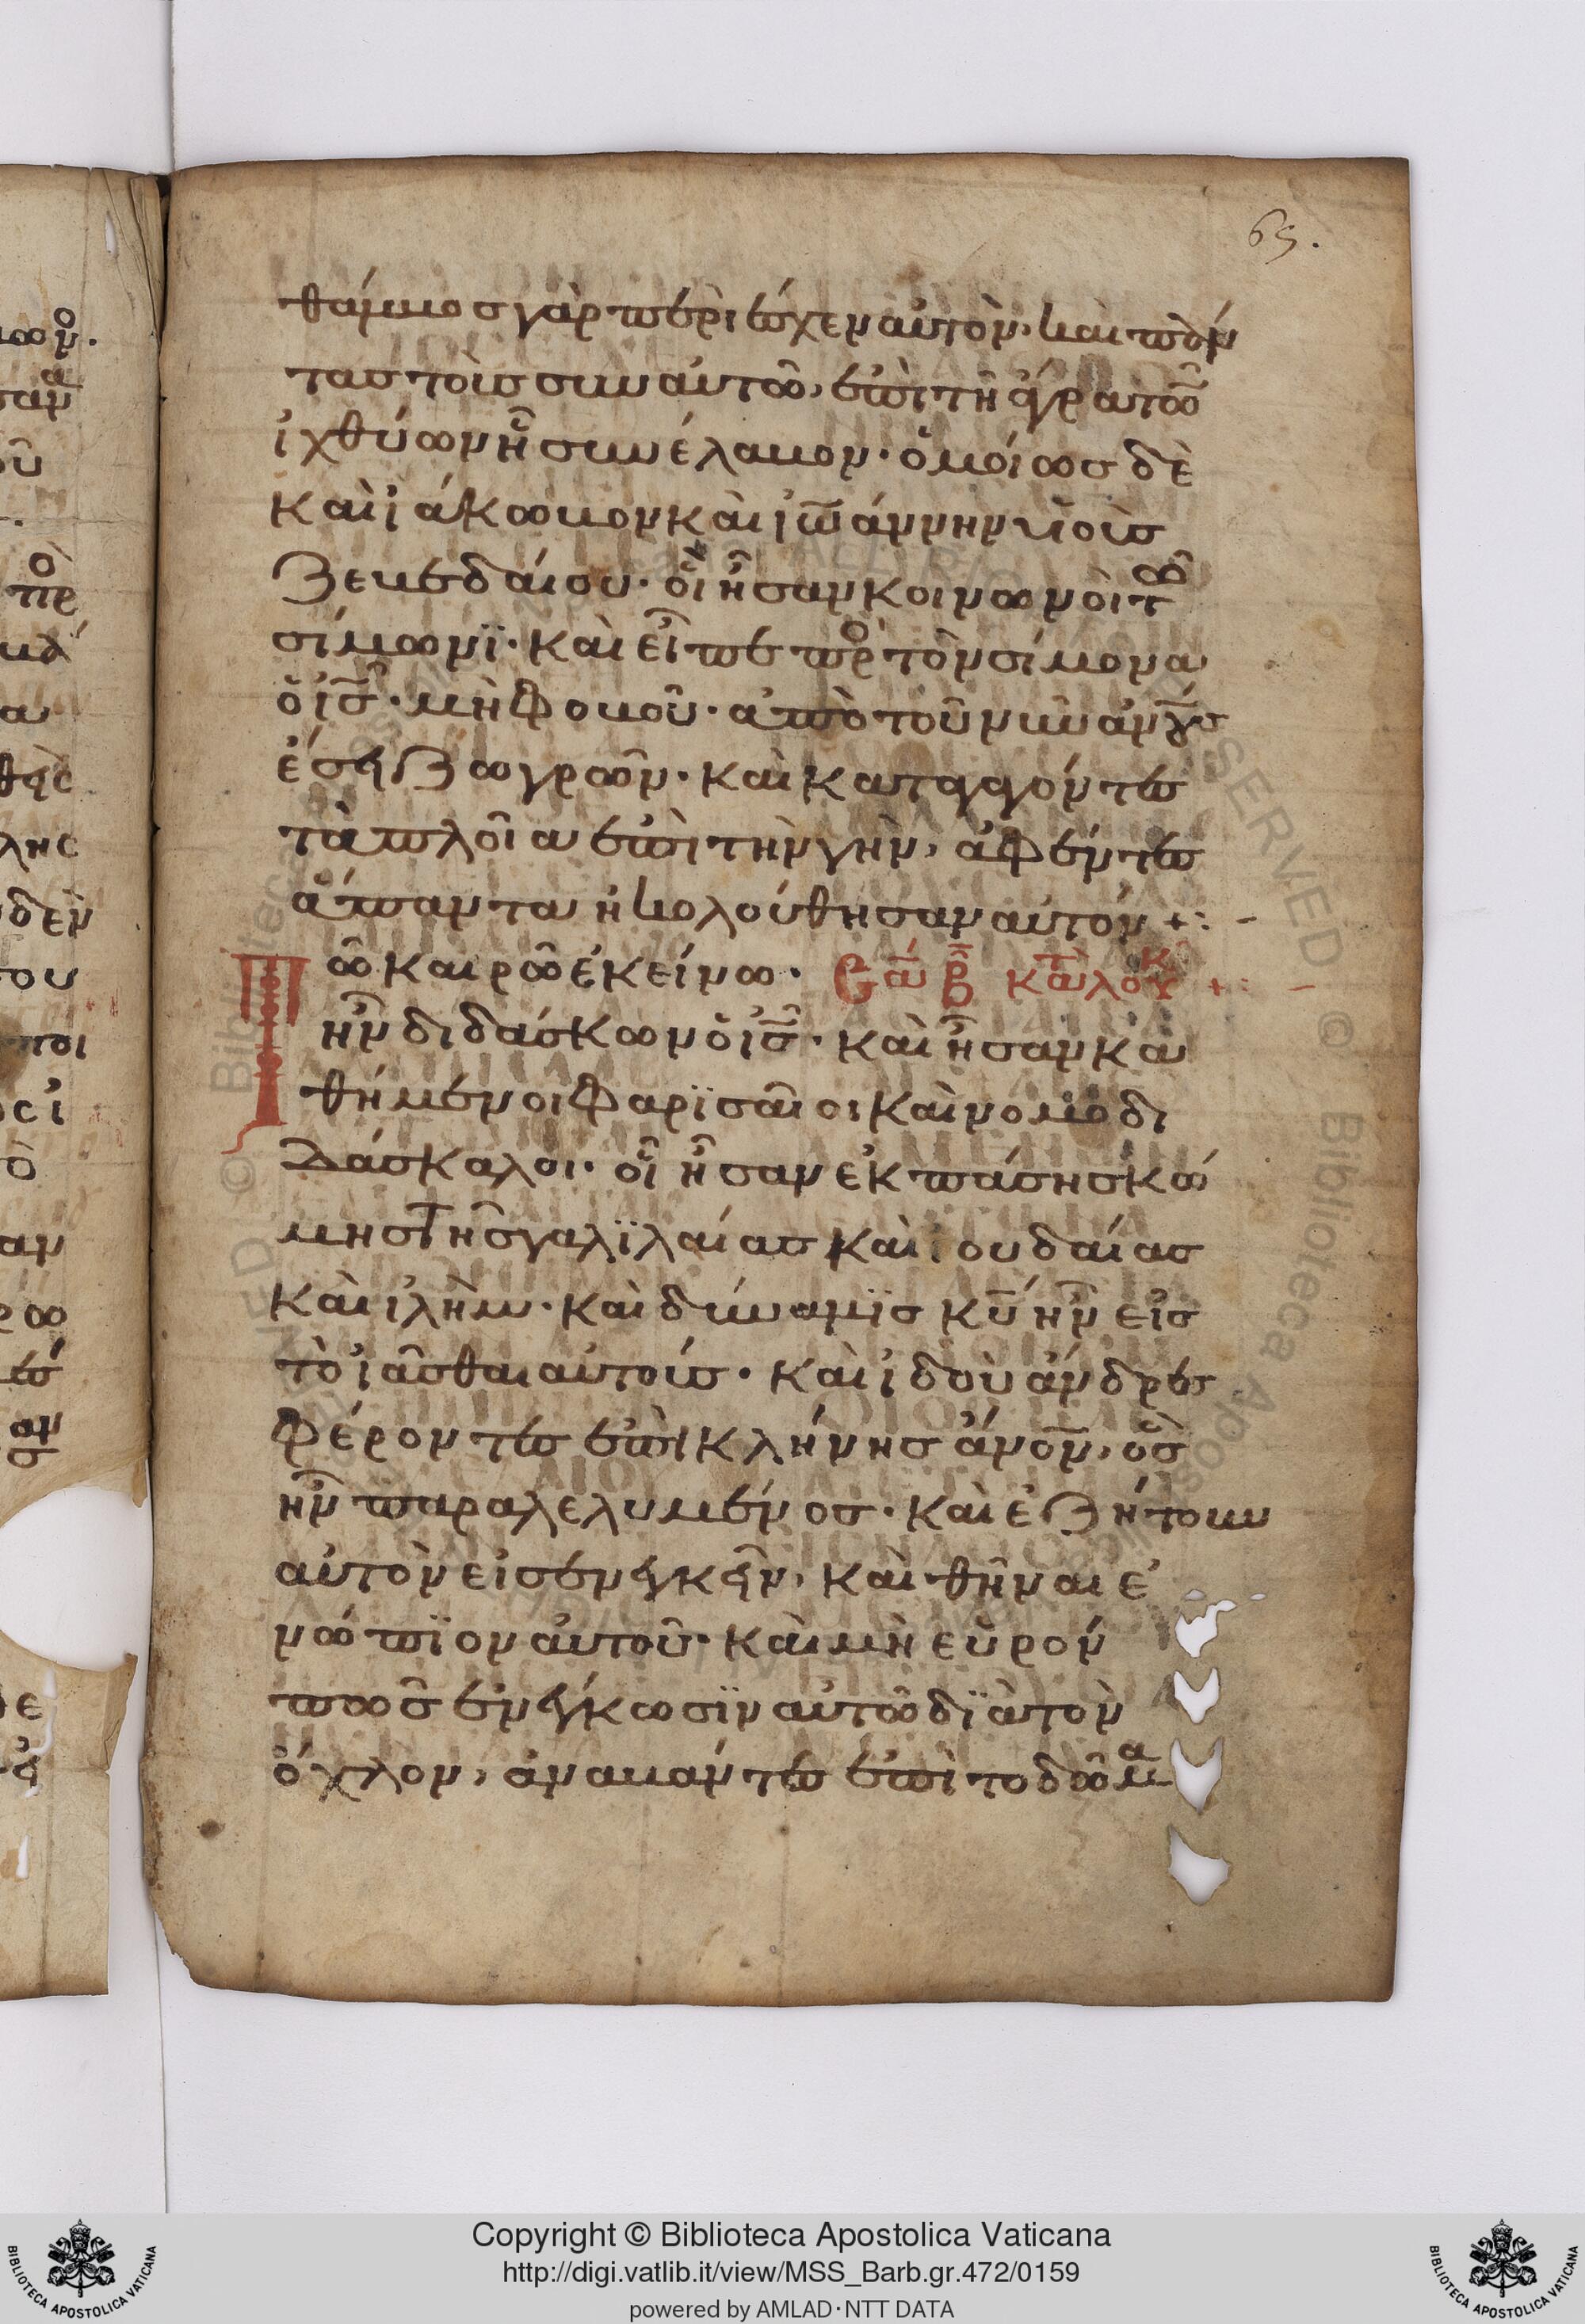 65.
θάμβοσ γὰρ περιέσχεν αὐτὸν· καὶ πάν
τας τοῖς σὺν αὐτῶ, ἐπὶ τῆ ἄγρα τῶν
ἰχθύων ἧ συνέλαβον· ὁμοίωσ δὲ
καὶ ἰάκωβον καὶ ἰω̅άννην υἱοὺσ
Ζεβεδαίου· οἳ ἦσαν κοινωνοὶ τῶ
σίμωνϊ· καὶ εἶπε πρὸ τὸν σίμονα
ὁ ἰ̅σ̅· μὴ φοβοῦ· ἀπὸ τοῦ νῦν ἀν̅ο̅υσ
ἔση ζωγρῶν· καὶ καταγαγόντεσ
τὰ πλοῖα ἐπὶ τὴν γὴν, ἀφέντεσ
ἄπαντα ἠκολούθησαν αὐτόν +: -
Τῶ καιρῶ ἐκείνω· Σαβ β̅ κατὰ λουκ +: -
ἦν διδάσκων ὁ ἰ̅σ̅· καὶ ἦσαν κα
θήμενοι φαρϊσαῖοι καὶ νομοδι
δάσκαλοι· οἳ ἦσαν ἐκ πάσησ κώ
μησ τῆσ γαλϊλαίασ καὶ ἰουδαίασ
καὶ ἰλὴμ· καὶ δύναμϊσ κ̅υ̅ ἦν εἰσ
τὸ ἰᾶσθαι αὐτούσ· καὶ ἰδοὺ ἄνδρεσ
φέροντεσ ἐπὶ κλήνησ ἄν̅ο̅ν̅, ὃσ
ἦν παραλελυμένοσ· καὶ ἐζήτουν
αὐτὸν εἰσενεγκεῖν, καὶ θῆναι ἐ
νώπϊον αὐτοῦ· καὶ μὴ εὑρόν
πῶσ ἐνέγκωσϊν αὐτῶ δϊὰ τὸν
ὄχλον, ἀναβάντεσ ἐπὶ τὸ δῶμα
Copyright © Biblioteca Apostolica Vaticana
http://digi.vatlib.it/view/MSS_Barb.gr.472/0159
powered by AMLAD·NTT DATA
BIBLIOTECA APOSTOLICA VATICANA
BIBLIOTECA APOSTOLICA VATICANA